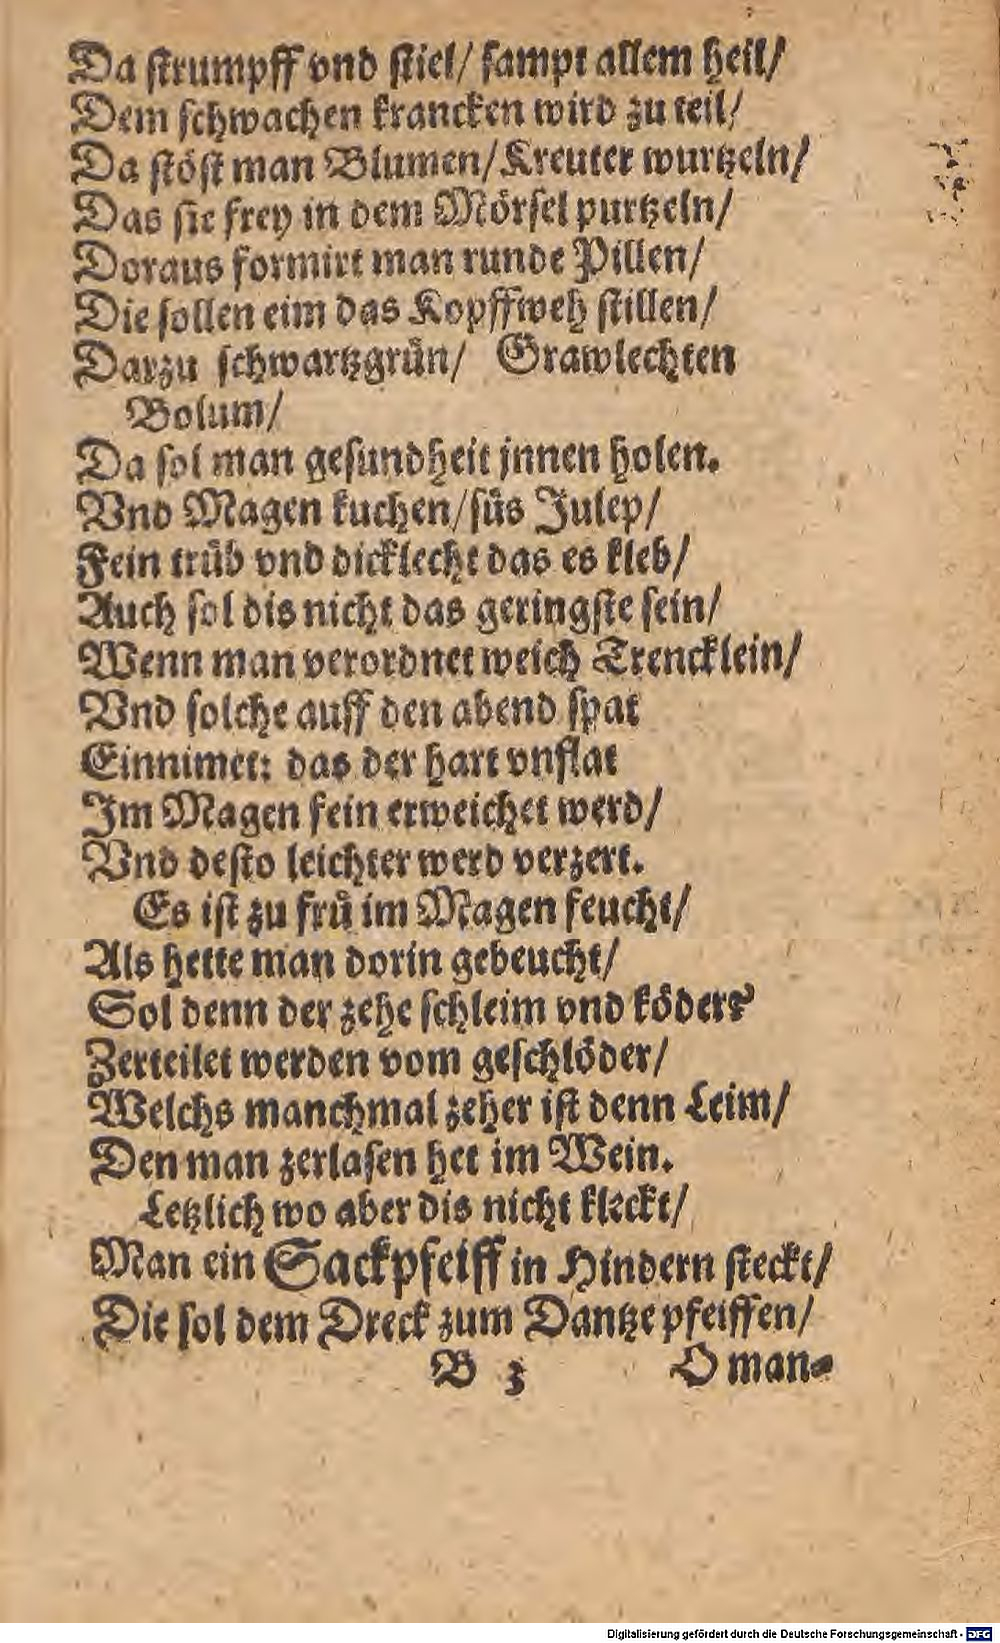 Da ſtrumpff vnd ſtiel/ ſampt allem heil/
Dem ſchwachen krancken wird zu teil/
Da ſtöſt man Blumen/ Kreuter wurtzeln/
Das ſie frey in dem Mörſel purtzeln/
Doraus formirt man runde Pillen/
Die ſollen eim das Kopffweh ſtillen/
Darzu ſchwartzgrün/ Grawlechten
Bolum/
Da ſol man geſundheit jnnen holen.
Vnd Magen kuchen/ ſüs Julep/
Fein trüb vnd dicklecht das es kleb/
Auch ſol dis nicht das geringſte ſein/
Wenn man verordnet weich Trencklein/
Vnd ſolche auff den abend ſpat
Einnimet: das der hart vnflat
Im Magen fein erweichet werd/
Vnd deſto leichter werd verzert.
Es iſt zu frü im Magen feucht/
Als hette man dorin gebeucht/
Sol denn der zehe ſchleim vnd köder?
Zerteilet werden vom geſchlöder/
Welchs manchmal zeher iſt denn Leim/
Den man zerlaſen het im Wein.
Letzlich wo aber dis nicht kleckt/
Man ein Sackpfeiff in Hindern ſteckt/
Die ſol dem Dreck zum Dantze pfeiffen/
B 3 O man-
Digitalisierung gefördert durch die Deutsche Forschungsgemeinschaft - DFG